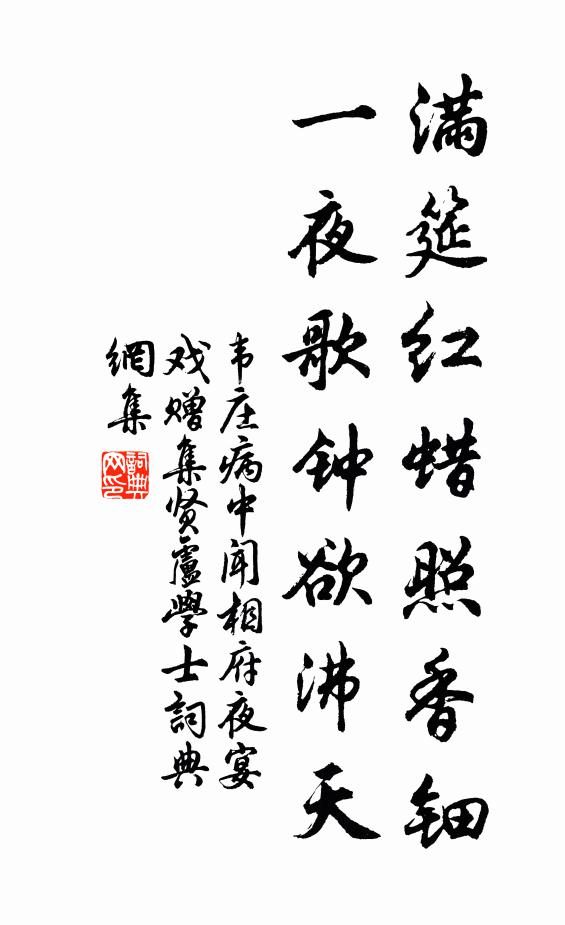 满筵红蜡照香钿
一夜歌钟欲沸天
韦庄病中闻相府夜宴
戏赠集贤盧學士詞典
網集
詞典網印